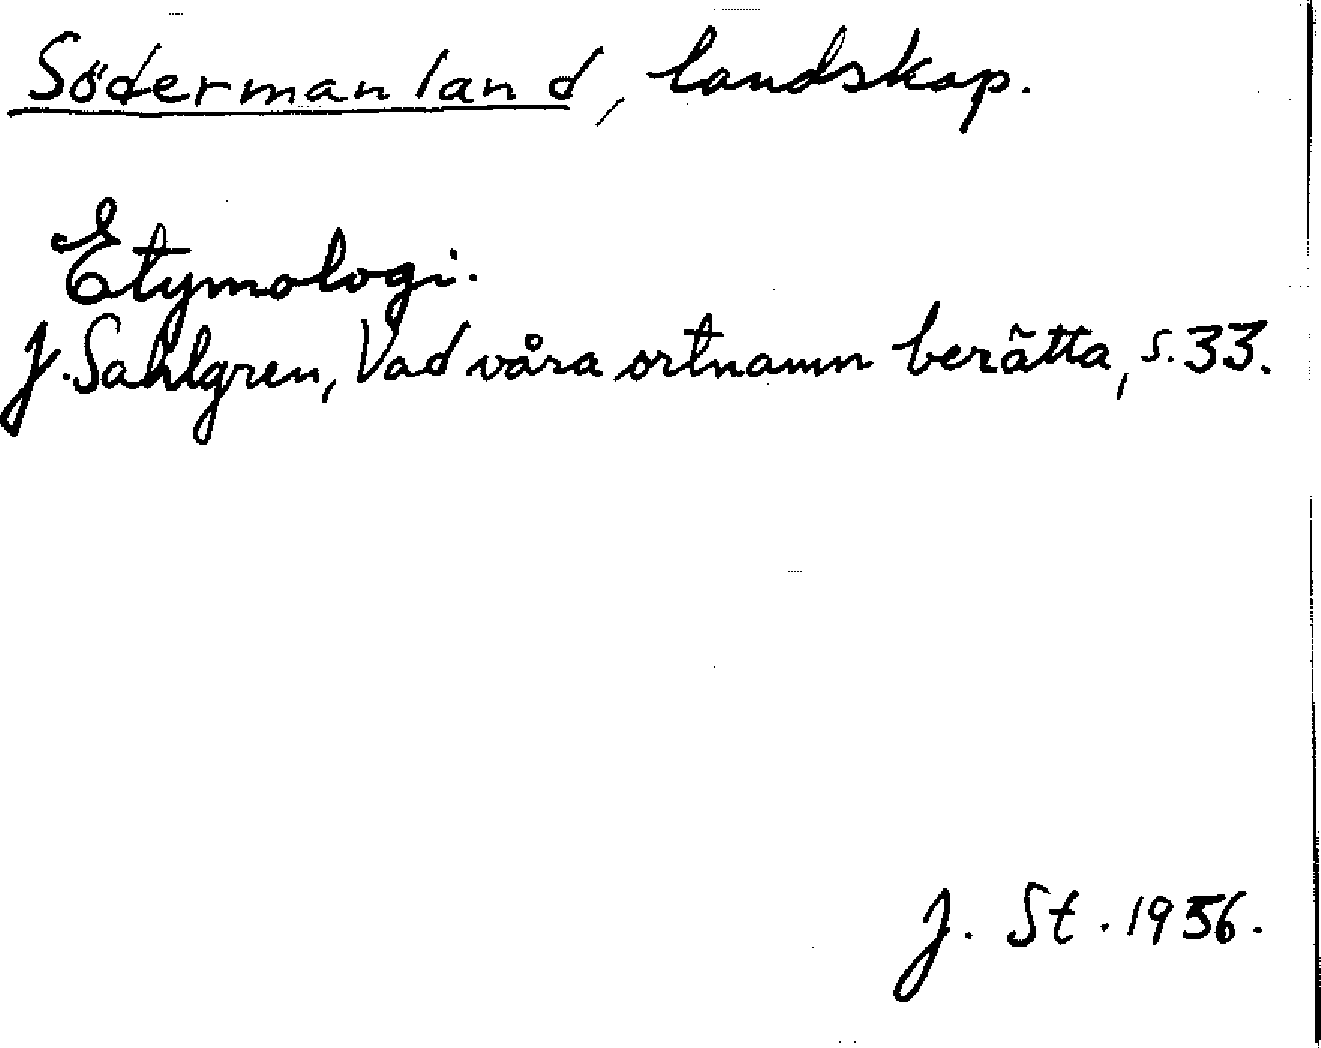 Södermanland, landskap.
Etymologi.
J. Sahlgren, Vad våra ortnamn berätta, s. 33.
J. St. 1956.